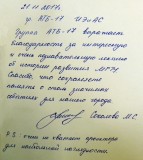 21.11.2017г.
гр. АТБ-17 ИЭиАС
Группа АТБ-17 выражает
благодарность за интересную
и очень познавательную лекцию
об истории развития МГТУ
Спасибо, что сохраняете
память о таких значимых
событиях для нашего города
Соколова М.С.
P.S. очень не хватает проектора
для наибольшей наглядности.